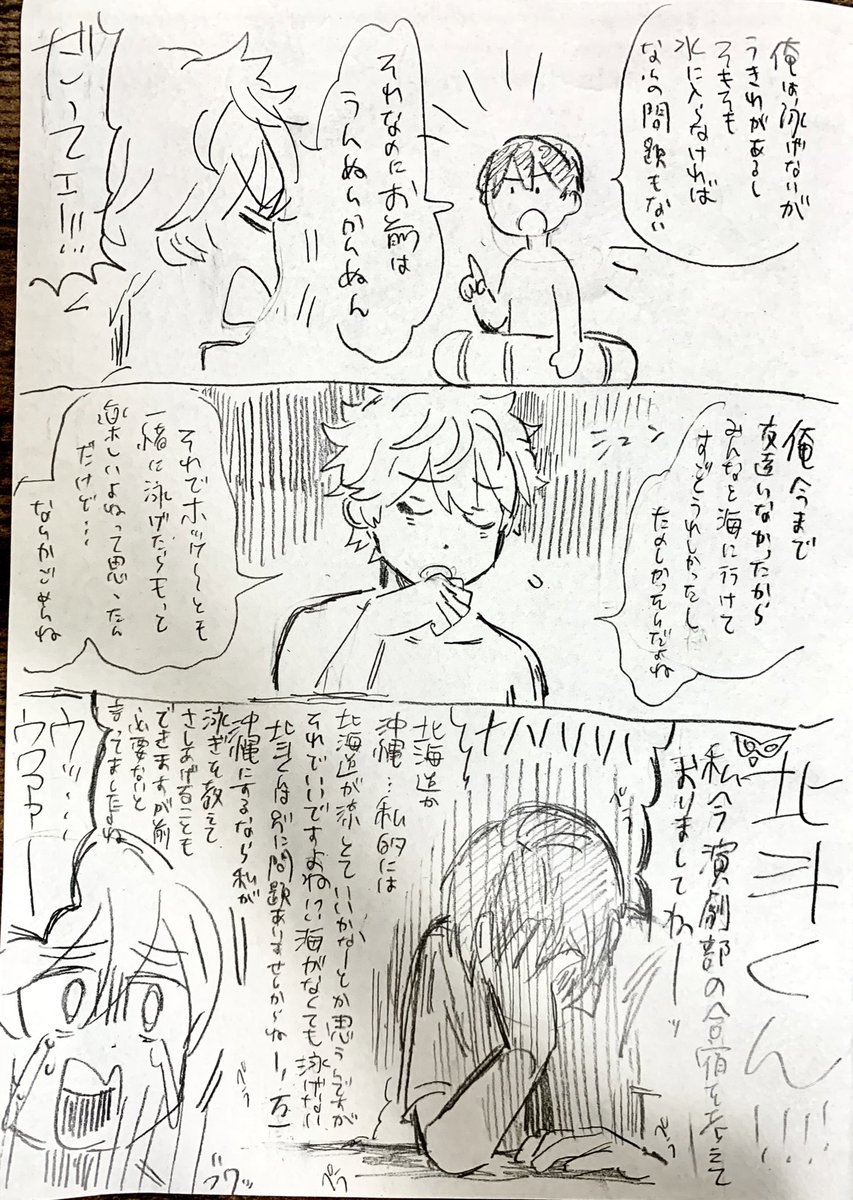 俺は泳げないが
うきわがあるし
そもそも
水に入らなければ
なんの問題もない
それなのにお前は
うんぬんかんぬん
だってェ!!!
俺今まで
友達いなかったから
みんなと海に行けて
すごくうれしかったし
たのしかったんだよね
シュン
それでホッケ〜とも
一緒に泳げたらもって
楽しいよねって思ったん
だけど…
なんかごめんね
北斗くん!!!!
私今演劇部の合宿を考えて
おりましてねーッ
ペラ
北海道か
沖縄…私的には
北海道が涼しくていいかなーとか思うんですが
それでいいですよね!海がなくても泳げない
北斗くんは別に問題ありませんからねー!万一
沖縄にするなら私が
泳ぎを教えて
さしあげることも
できますが前
必要ないと
言ってましたよね
ペラ
ペラ
ペラ
ウッ…
ウワァァー
ブワッ